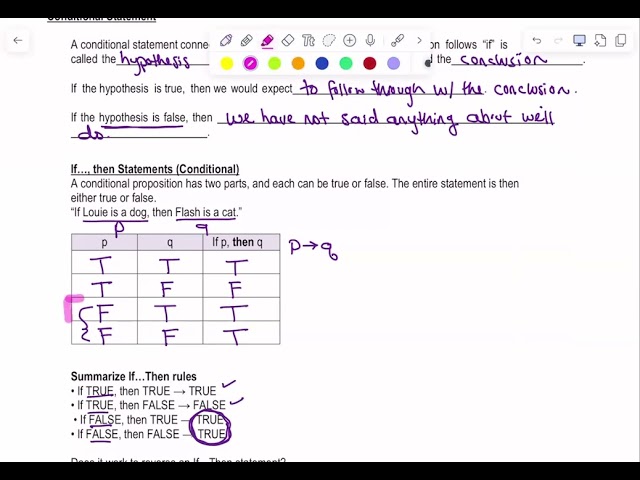 Conditional Statement
A conditional statement conne on follows "if" is
called the hypothesis d the conclusion.
If the hypothesis is true, then we would expect to follow through w/ the conclusion.
If the hypothesis is false, then we have not said anything about we'll
do.
If…, then Statements (Conditional)
A conditional proposition has two parts, and each can be true or false. The entire statement is then
either true or false.
"If Louie is a dog, then Flash is a cat."
p q
p q If p, then q p→q
T T T
T F F
F T T
F F T
Summarize If…Then rules
• If TRUE, then TRUE → TRUE ✓
• If TRUE, then FALSE → FALSE ✓
• If FALSE, then TRUE → TRUE
• If FALSE, then FALSE → TRUE
Does it work to reverse an If…Then statement?